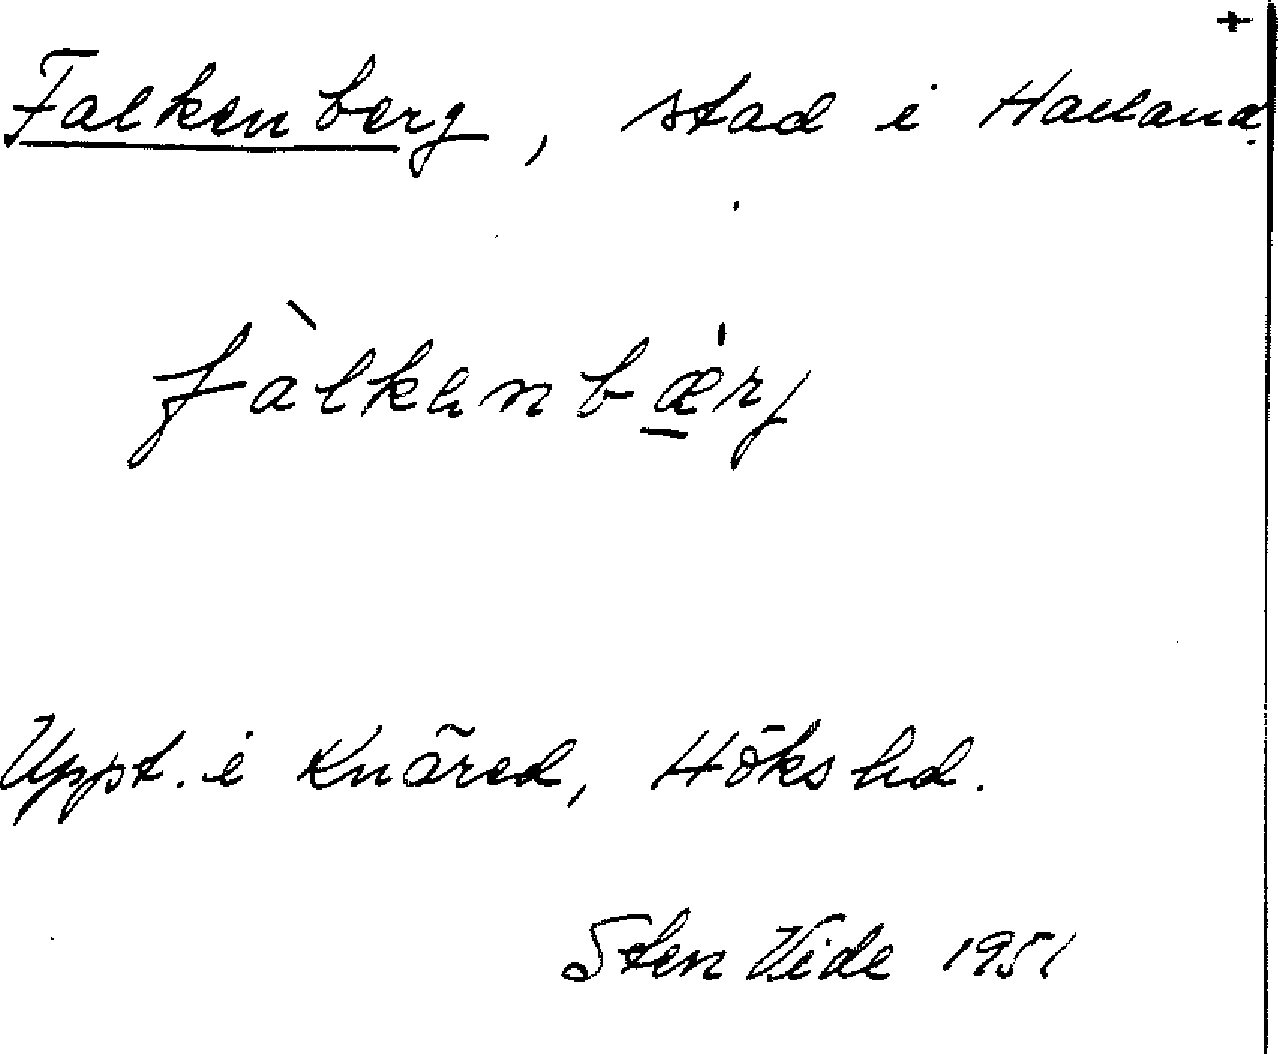 +
Falkenberg, stad i Halland.
fàlkɐnbæ̱̍rj
Uppt. i Knäred, Höks hd.
Sten Vide 1951